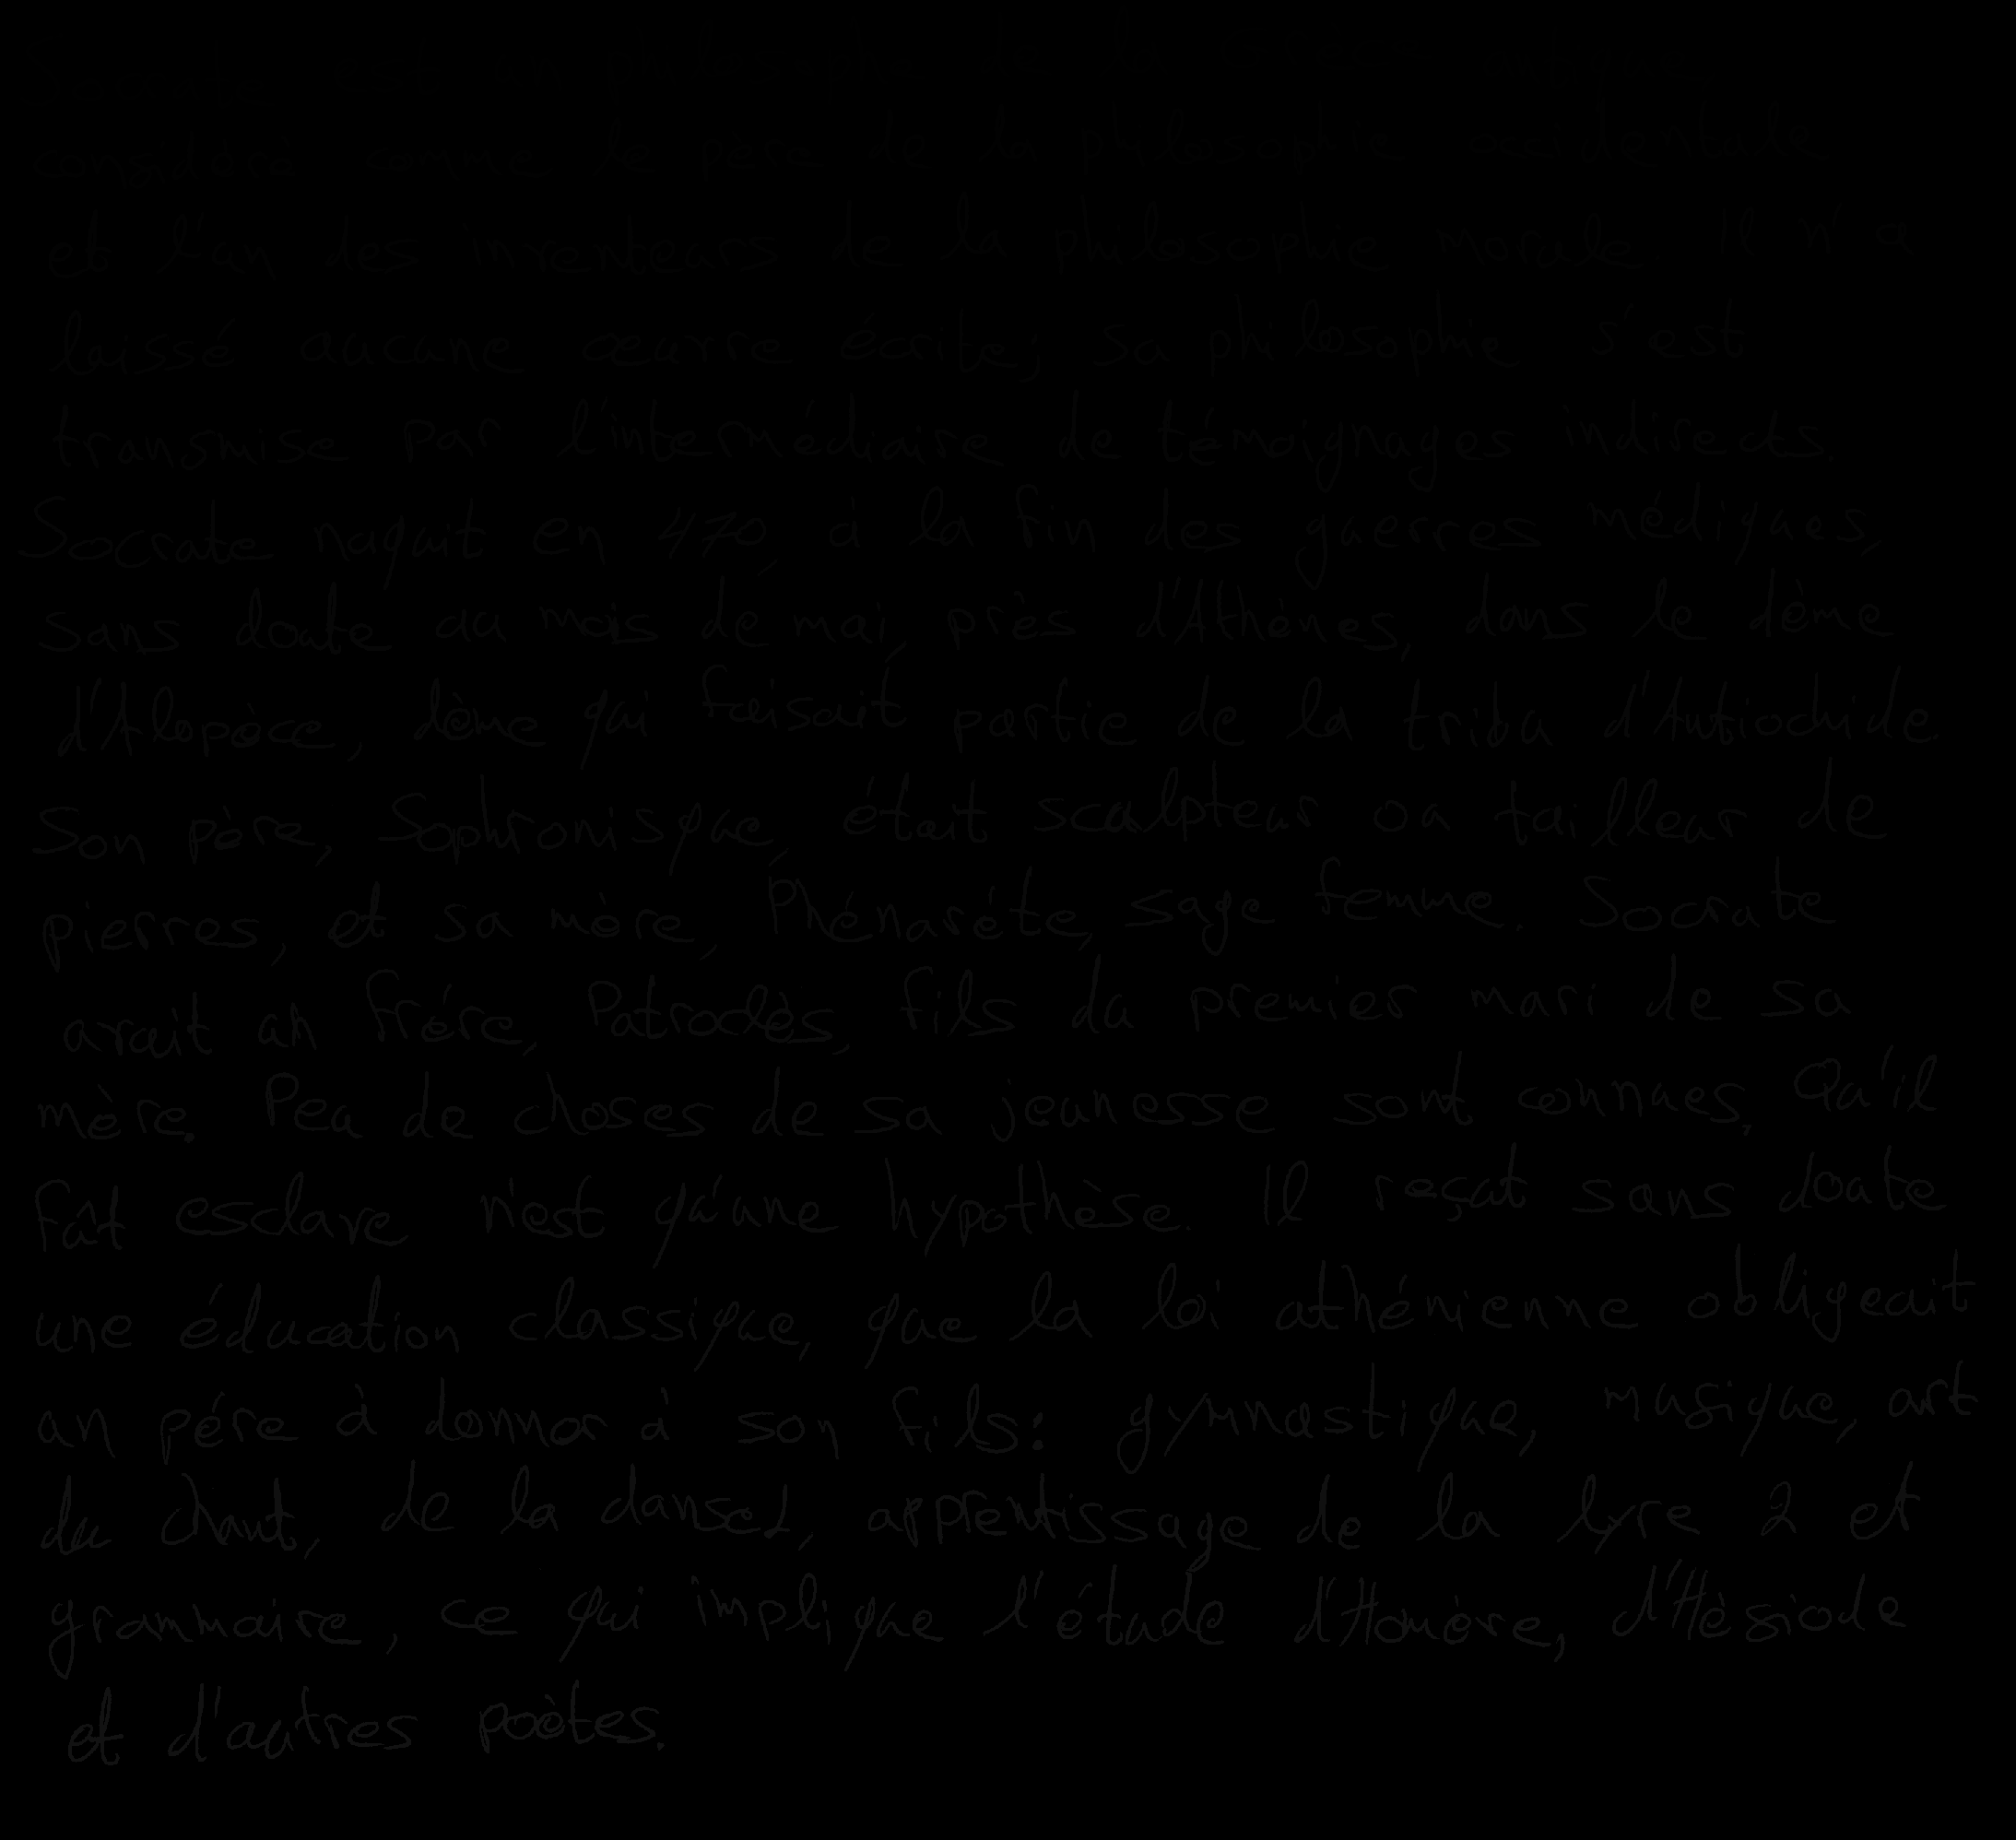 considéré comme le père de la philosophie occidentale
et l'un des inventeurs de la philosophie morale. Il n'a
laissé aucune œuvre écrite; sa philosophie s'est
transmise par l'intermédiaire de témoignages indirects.
Socrate naquit en 470, à la fin des guerres médiques,
sans doute au mois de mai, près d'Athènes, dans le dème
d'Alopèce, dème qui faisait partie de la tribu d'Antiochide.
Son père, Sophronisque, était sculpteur ou tailleur de
pierres, et sa mère, Phénarète, sage femme. Socrate
avait un frère, Patroclès, fils du premier mari de sa
mère. Peu de choses de sa jeunesse sont connues, Qu'il
fût esclave n'est qu'une hypothèse. Il reçut sans doute
une éducation classique, que la loi athénienne obligeait
un père à donner à son fils: gymnastique, musique, art
du chant, de la danse1, apprentissage de la lyre 2 et
grammaire, ce qui implique l'étude d'Homère, d'Hésiode
et d'autres poètes.